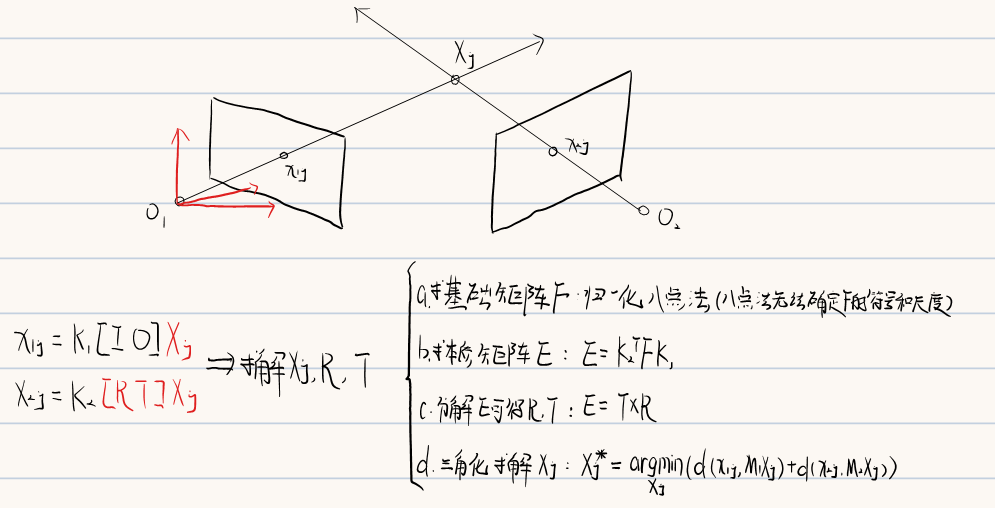 Xj
x1j
x2j
O1
O2
x1j = K1[I 0]Xj
x2j = K2[R T]Xj
⇒ 求解Xj, R, T
a.求基础矩阵F:归一化八点法(八点法无法确定F的符号和尺度)
b.求本质矩阵E: E=K2ᵀFK1
c.分解E可得R,T: E=T×R
d.三角化求解Xj: Xj*=argmin(d(x1j,M1Xj)+d(x2j,M2Xj))
Xj